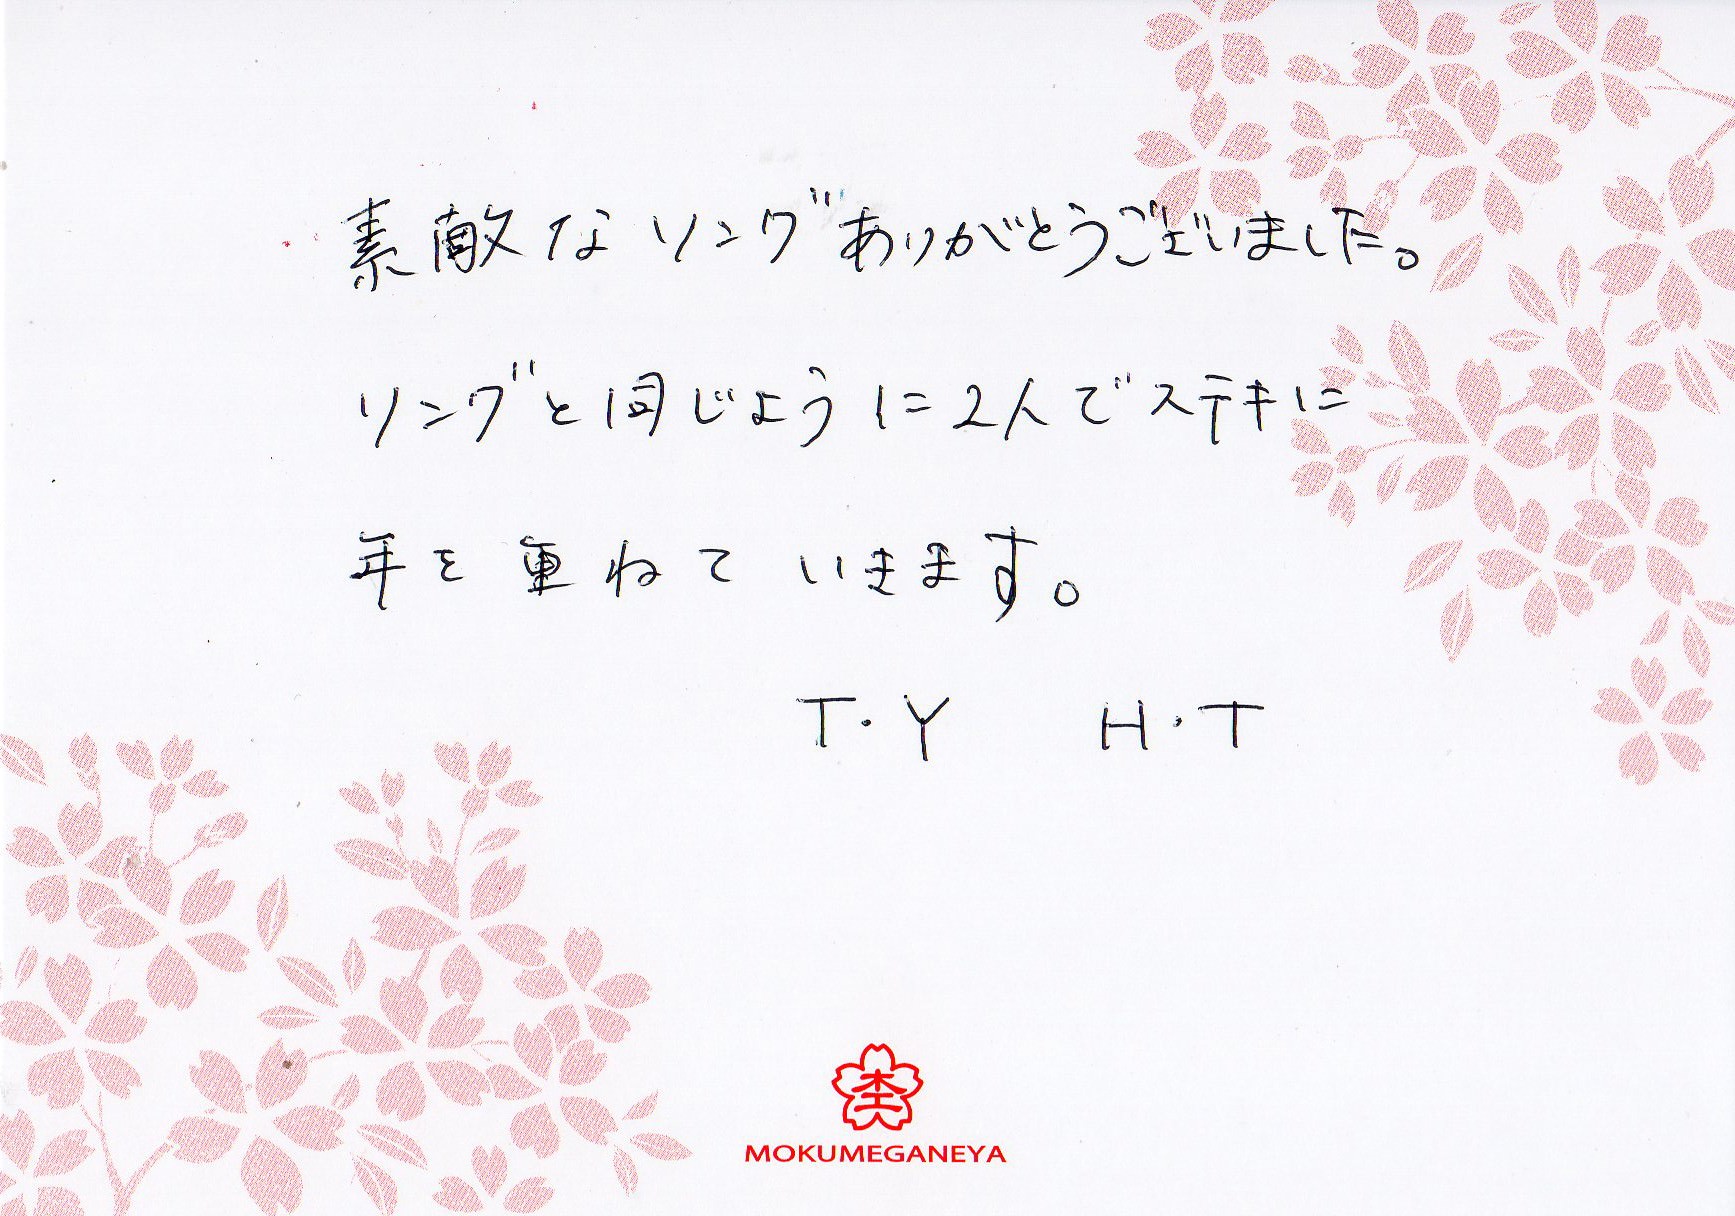 素敵なリングありがとうございました。
リングと同じように2人でステキに
年を重ねていきます。
T・Y H・T
MOKUMEGANEYA